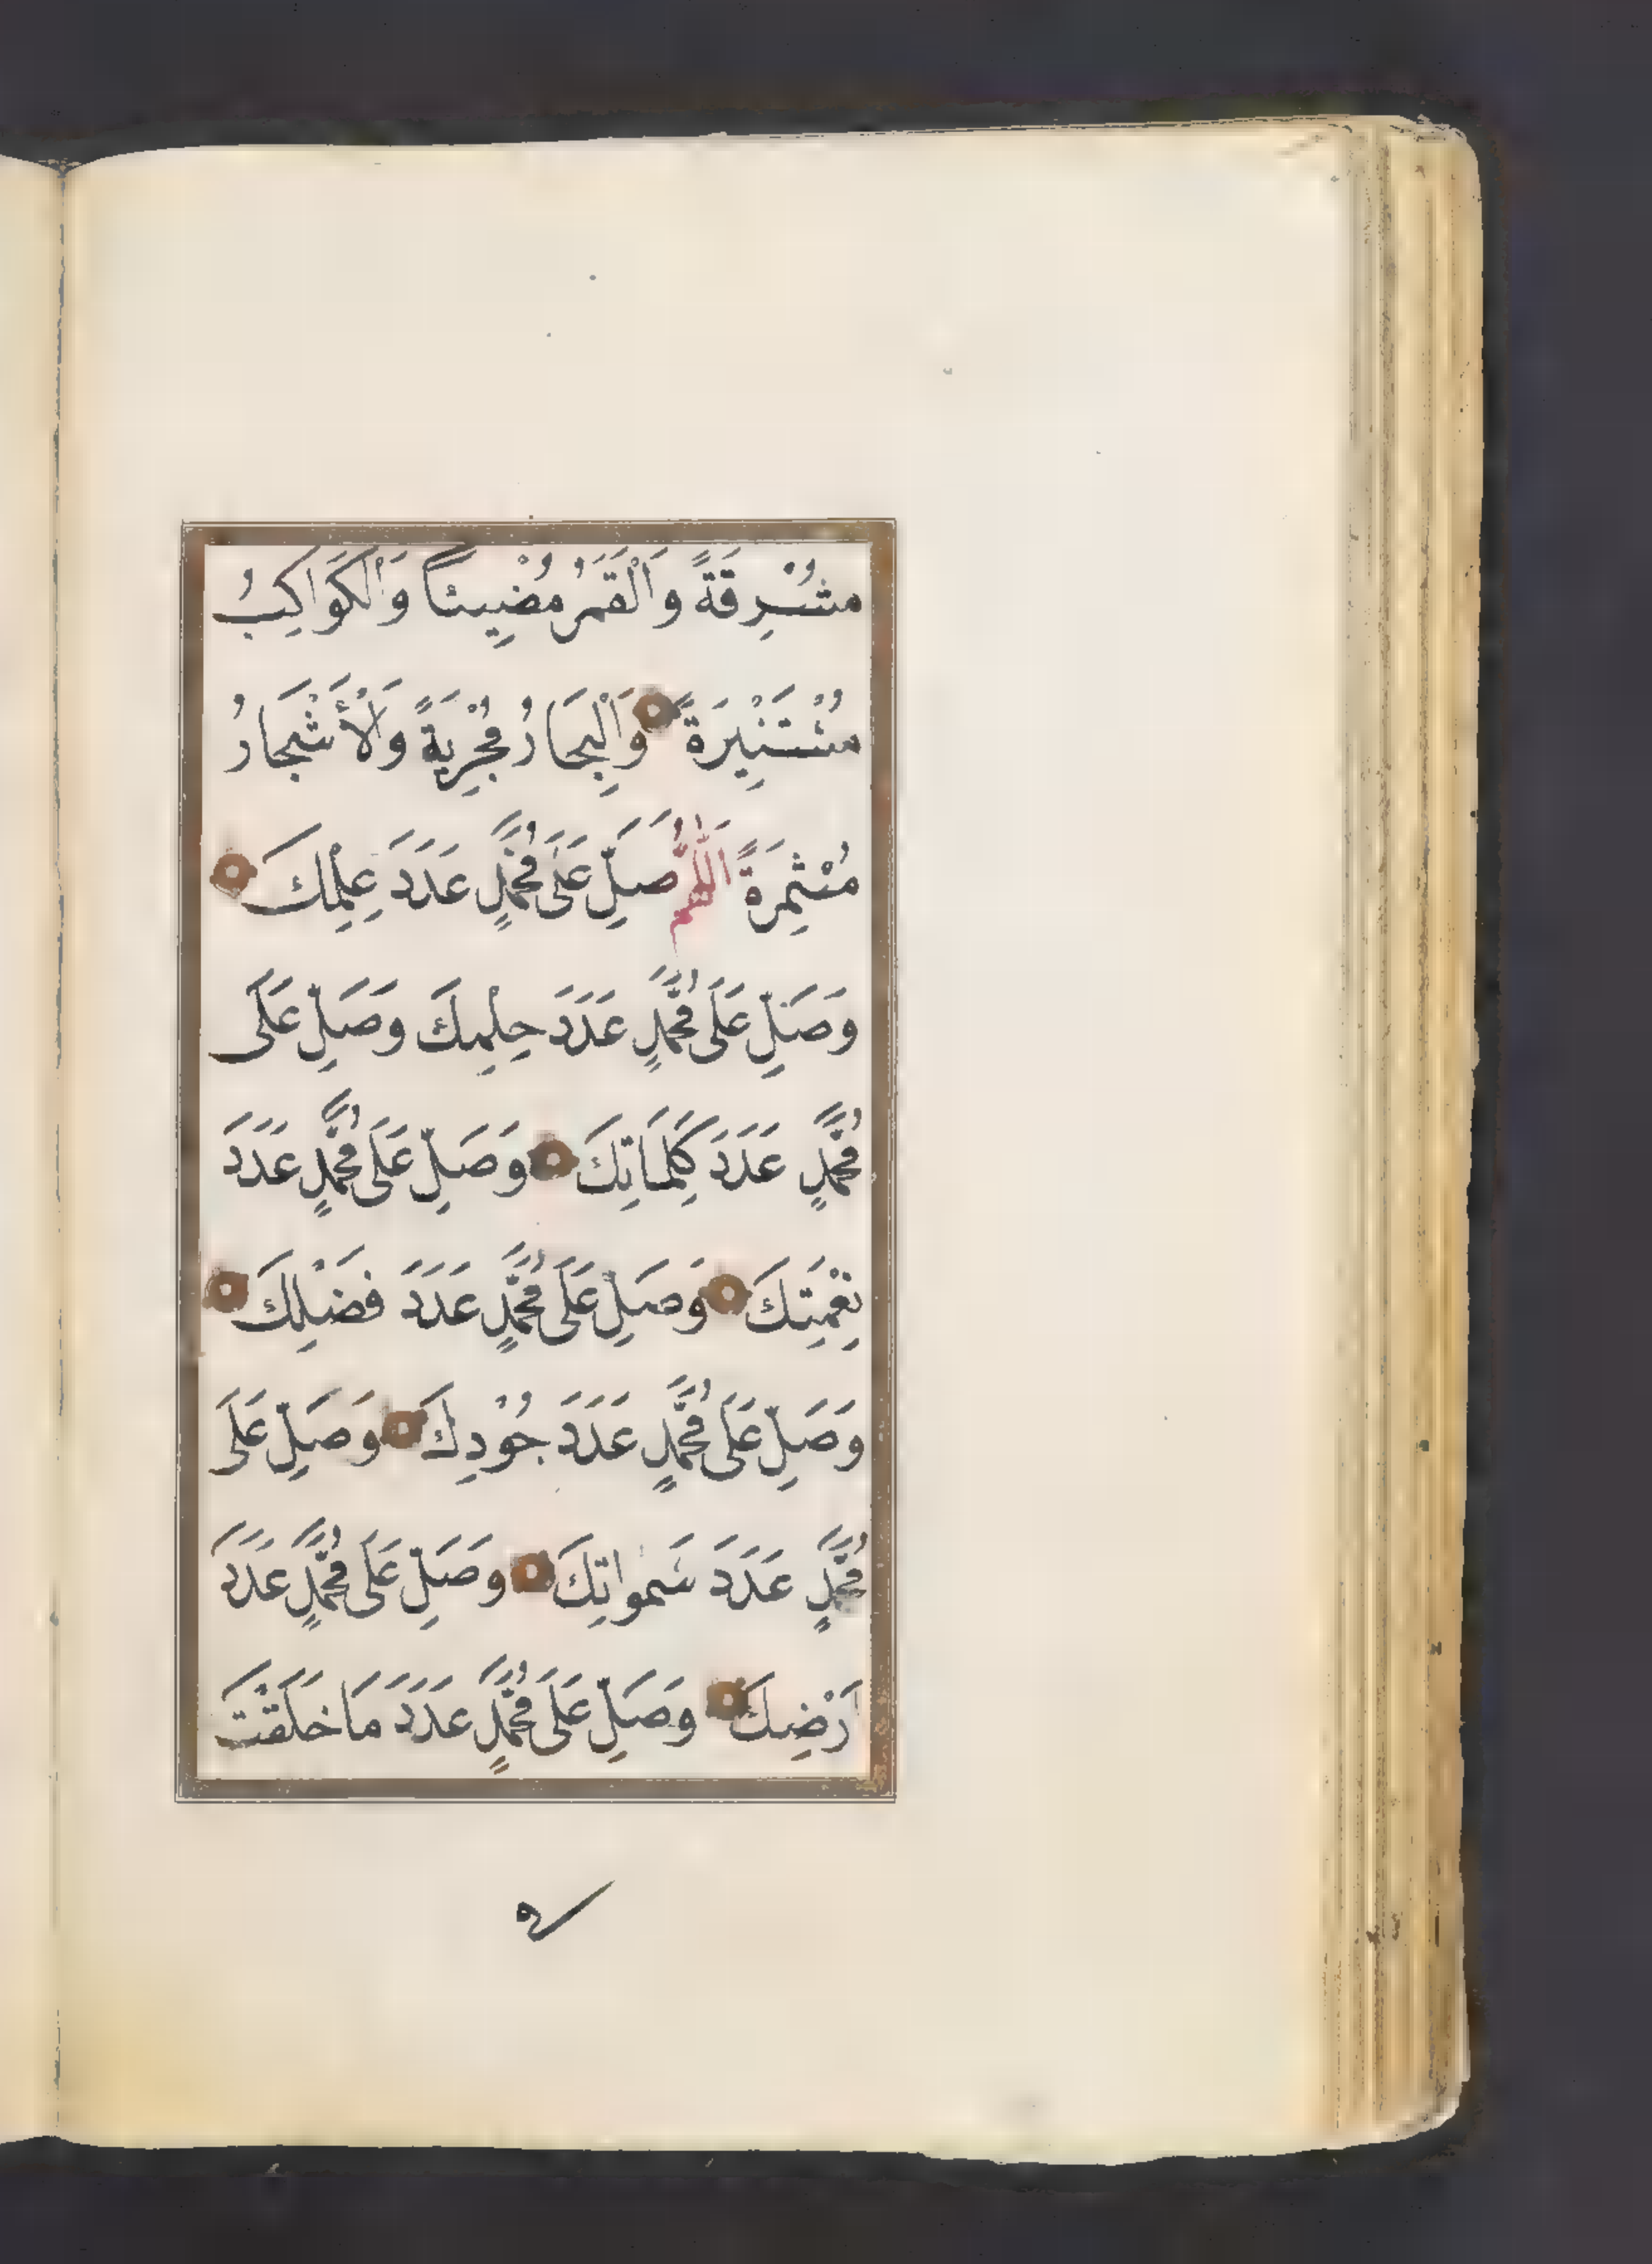 مُشْرِقَةً وَالْقَمَرُ مُضِيئًا وَالْكَوَاكِبُ
مُسْتَنِيْرَةً وَالْبِحَارُ مُجْرِيَةً وَالْأَشْجَارُ
مُثْمِرَةً اَللّٰهُمَّ صَلِّ عَلَى مُحَمَّدٍ عَدَدَ عِلْمِكَ
وَصَلِّ عَلَى مُحَمَّدٍ عَدَدَ حِلْمِكَ وَصَلِّ عَلَى
مُحَمَّدٍ عَدَدَ كَلِمَاتِكَ وَصَلِّ عَلَى مُحَمَّدٍ عَدَدَ
نِعْمَتِكَ وَصَلِّ عَلَى مُحَمَّدٍ عَدَدَ فَضْلِكَ
وَصَلِّ عَلَى مُحَمَّدٍ عَدَدَ جُوْدِكَ وَصَلِّ عَلَى
مُحَمَّدٍ عَدَدَ سَمواتِكَ وَصَلِّ عَلَى مُحَمَّدٍ عَدَدَ
اَرْضِكَ وَصَلِّ عَلَى مُحَمَّدٍ عَدَدَ مَا خَلَقْتَ